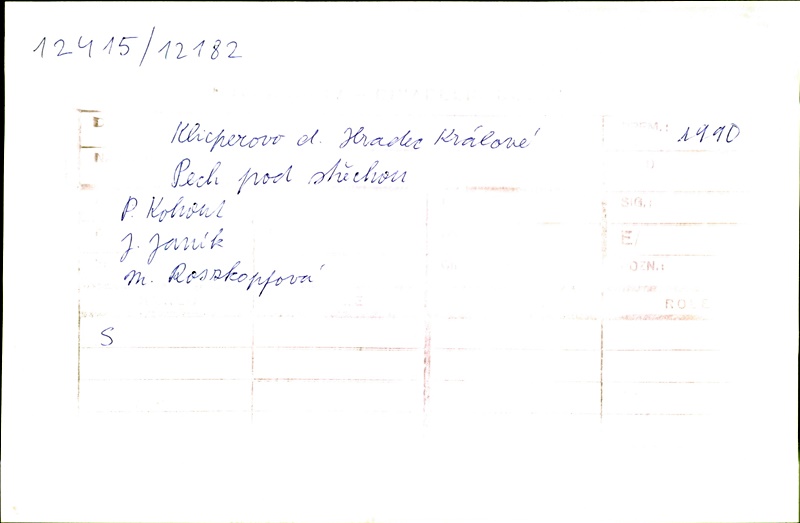 12415/12182
Klicperovo d. Hradec Králové 1990
Pech pod střechou
P. Kohout
J. Janík
M. Roszkopfová
S
S.G.:
E/
DEN.: